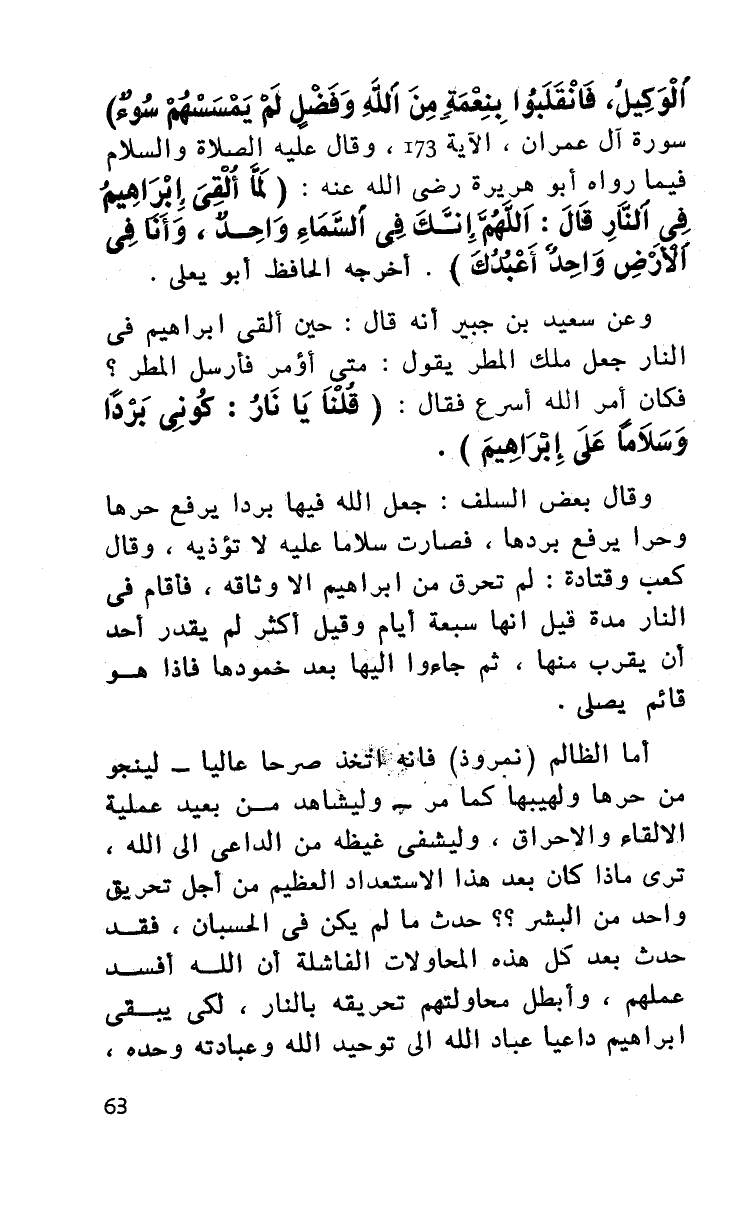 ٱلْوَكِيلُ، فَانْقَلَبُوا بِنِعْمَةٍ مِنَ ٱللَّهِ وَفَضْلٍ لَمْ يَمْسَسْهُمْ سُوءٌ)
سورة آل عمران ، الآية 173 ، وقال عليه الصلاة والسلام
فيما رواه أبو هريرة رضى الله عنه : ( لَمَّا أُلْقِىَ إِبْرَاهِيمُ
فِى ٱلنَّارِ قَالَ : ٱللَّهُمَّ إِنَّـكَ فِى ٱلسَّمَاءِ وَاحِـدٌ ، وَأَنَا فِى
ٱلْأَرْضِ وَاحِدٌ أَعْبُدُكَ ) . أخرجه الحافظ أبو يعلى .
وعن سعيد بن جبير أنه قال : حين ألقى ابراهيم فى
النار جعل ملك المطر يقول : متى أؤمر فأرسل المطر ؟
فكان أمر الله أسرع فقال : ( قُلْنَا يَا نَارُ : كُونِى بَرْدًا
وَسَلَامًا عَلَى إِبْرَاهِيمَ ) .
وقال بعض السلف : جعل الله فيها بردا يرفع حرها
وحرا يرفع بردها ، فصارت سلاما عليه لا تؤذيه ، وقال
كعب وقتادة : لم تحرق من ابراهيم الا وثاقه ، فأقام فى
النار مدة قيل انها سبعة أيام وقيل أكثر لم يقدر أحد
أن يقرب منها ، ثم جاءوا اليها بعد خمودها فاذا هـو
قائم يصلى .
أما الظالم (نمروذ) فانه اتخذ صرحا عاليا – لينجو
من حرها ولهيبها كما مر – وليشاهد مـن بعيد عملية
الالقاء والاحراق ، وليشفى غيظه من الداعى الى الله ،
ترى ماذا كان بعد هذا الاستعداد العظيم من أجل تحريق
واحد من البشر ؟؟ حدث ما لم يكن فى الحسبان ، فقـد
حدث بعد كل هذه المحاولات الفاشلة أن اللـه أفسـد
عملهم ، وأبطل محاولتهم تحريقه بالنار ، لكى يبـقى
ابراهيم داعيا عباد الله الى توحيد الله وعبادته وحده ،
63